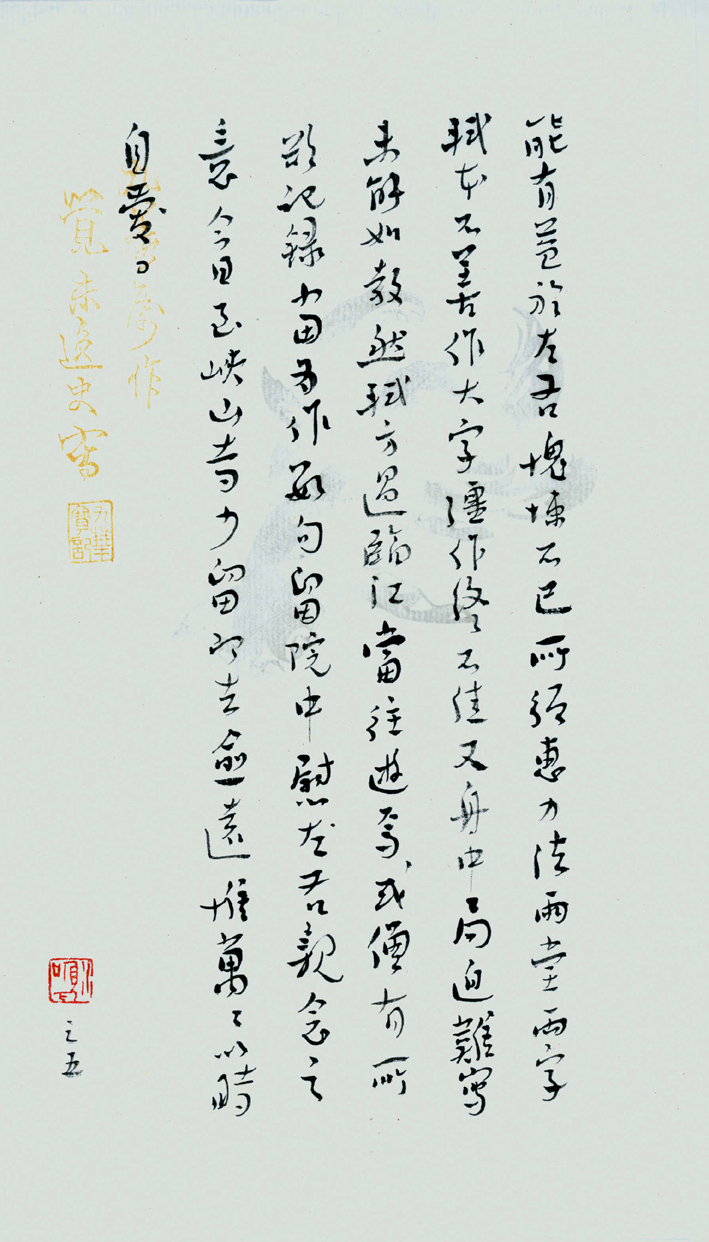 能有益於左右愧悚不已所須惠力法雨堂兩字
軾本不善作大字彊作終不佳又舟中局迫難寫
未能如教然軾方過臨江當往遊焉或僧有所
欲記錄當為作數句留院中慰左右親念之
意今日至峽山寺少留即去愈遠惟萬〻以時
自愛〻
作
覺未逸史寫
之五